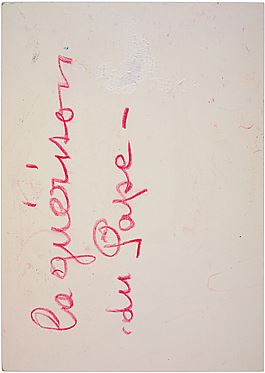 la guérison
du Pape -